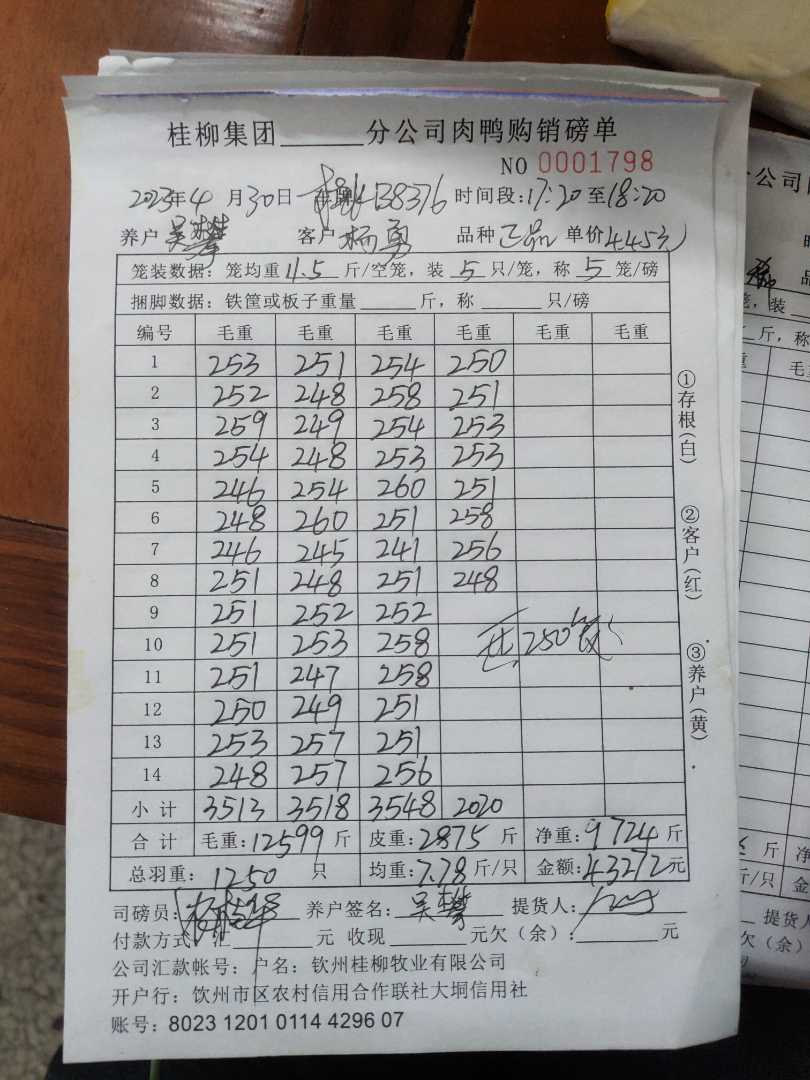 桂柳集团______分公司肉鸭购销磅单
NO 0001798
2023年4月30日 38376 时间段:17:20至18:20
养户 吴攀 客户 杨勇 品种 正品 单价 4.45元
笼装数据：笼均重 11.5 斤/空笼，装 5 只/笼，称 5 笼/磅
捆脚数据：铁筐或板子重量______斤，称______只/磅
编号 毛重 毛重 毛重 毛重 毛重 毛重
1 253 251 254 250
2 252 248 258 251
3 259 249 254 253
4 254 248 253 253
5 246 254 260 251
6 248 260 251 258
7 246 245 241 256
8 251 248 251 248
9 251 252 252
10 251 253 258
11 251 247 258
12 250 249 251
13 253 257 251
14 248 257 256
250笼
小计 3513 3518 3548 2020
合计 毛重:12599斤 皮重:2875斤 净重:9724斤
总羽重: 1250 只 均重:7.78斤/只 金额:43272元
司磅员: 养户签名: 吴攀 提货人:
付款方式: 汇______元 收现______元欠（余）:______元
公司汇款帐号：户名：钦州桂柳牧业有限公司
开户行：饮州市区农村信用合作联社大垌信用社
账号：8023 1201 0114 4296 07
①存根(白)
②客户(红)
③养户(黄)